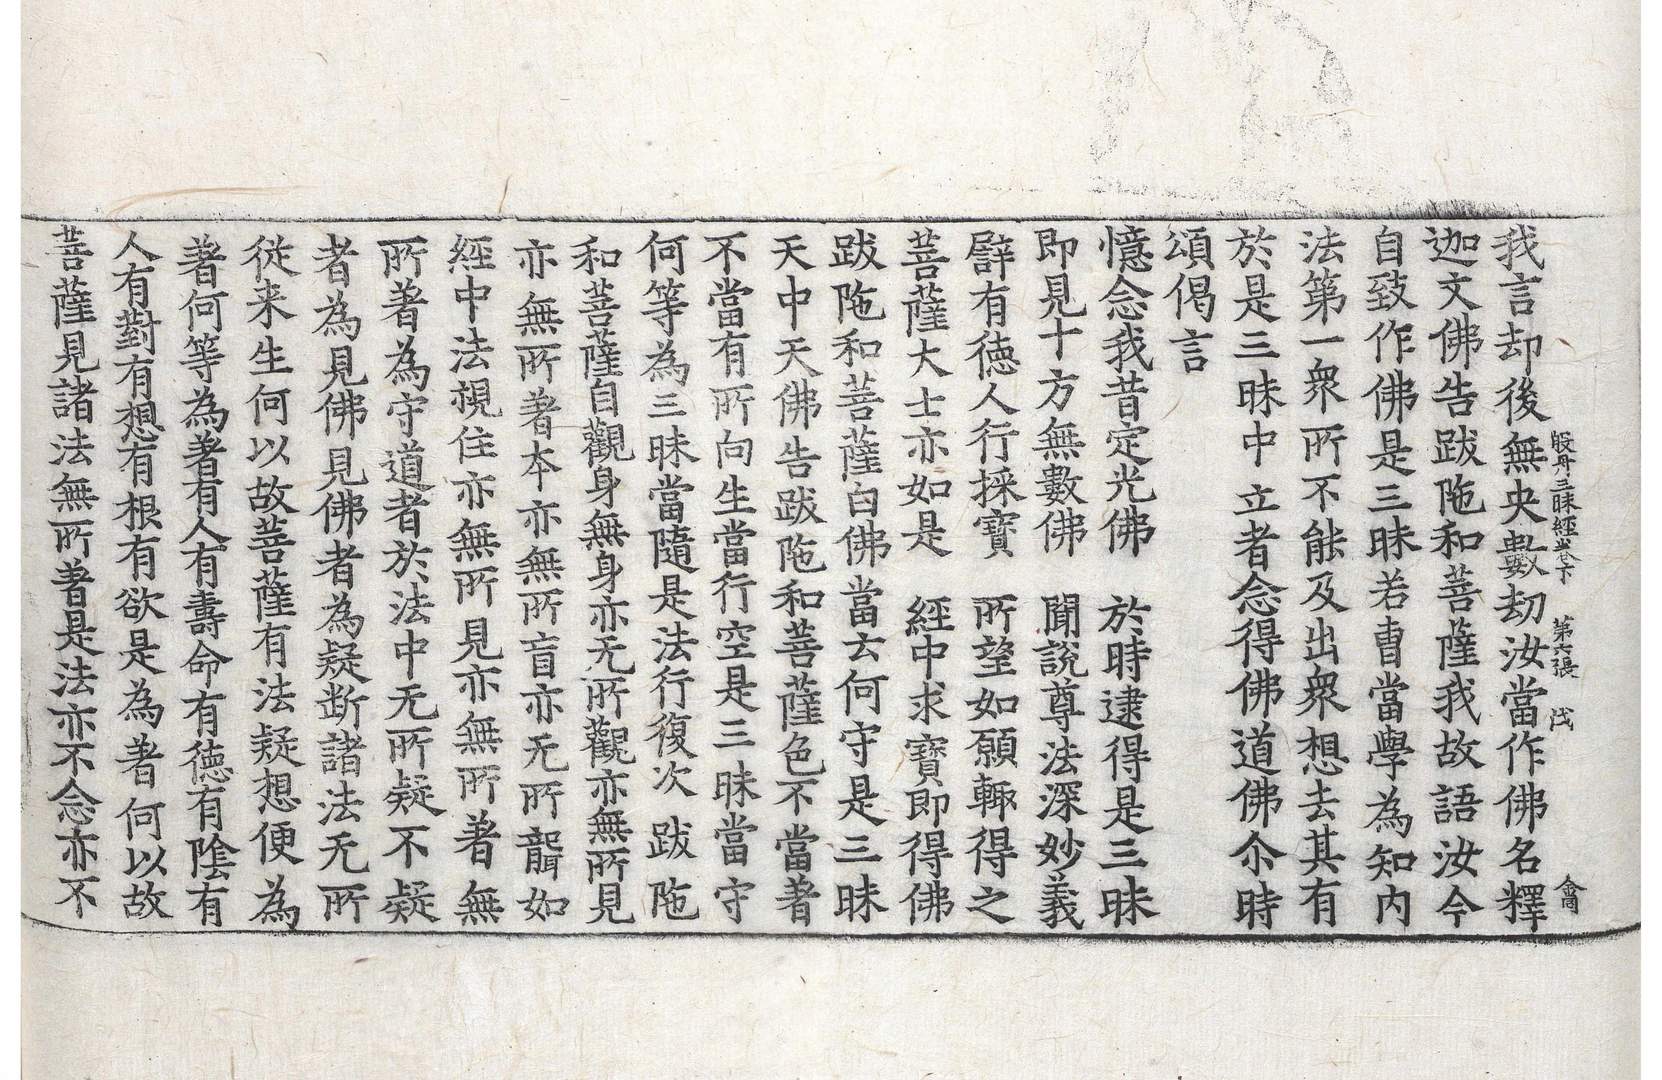 般舟三昧經卷下 第六張 伐 会同
我言却後無央數劫汝當作佛名釋
迦文佛告跋陁和菩薩我故語汝今
自致作佛是三昧若曹當學為知内
法第一衆所不能及出衆想去其有
於是三昧中立者念得佛道佛尒時
頌偈言
憶念我昔定光佛 於時逮得是三昧
即見十方無數佛 聞說尊法深妙義
譬有德人行採寶 所望如願輙得之
菩薩大士亦如是 經中求寳即得佛
跋陁和菩薩白佛當云何守是三昧
天中天佛告跋陁和菩薩色不當著
不當有所向生當行空是三昧當守
何等為三昧當隨是法行復次跋陁
和菩薩自觀身無身亦无所觀亦無所見
亦無所著本亦無所盲亦无所聾如
經中法視住亦無所見亦無所著無
所著為守道者於法中无所疑不疑
者為見佛見佛者為疑断諸法无所
從来生何以故菩薩有法疑想便為
著何等為著有人有壽命有德有陰有
人有對有想有根有欲是為著何以故
菩薩見諸法無所著是法亦不念亦不